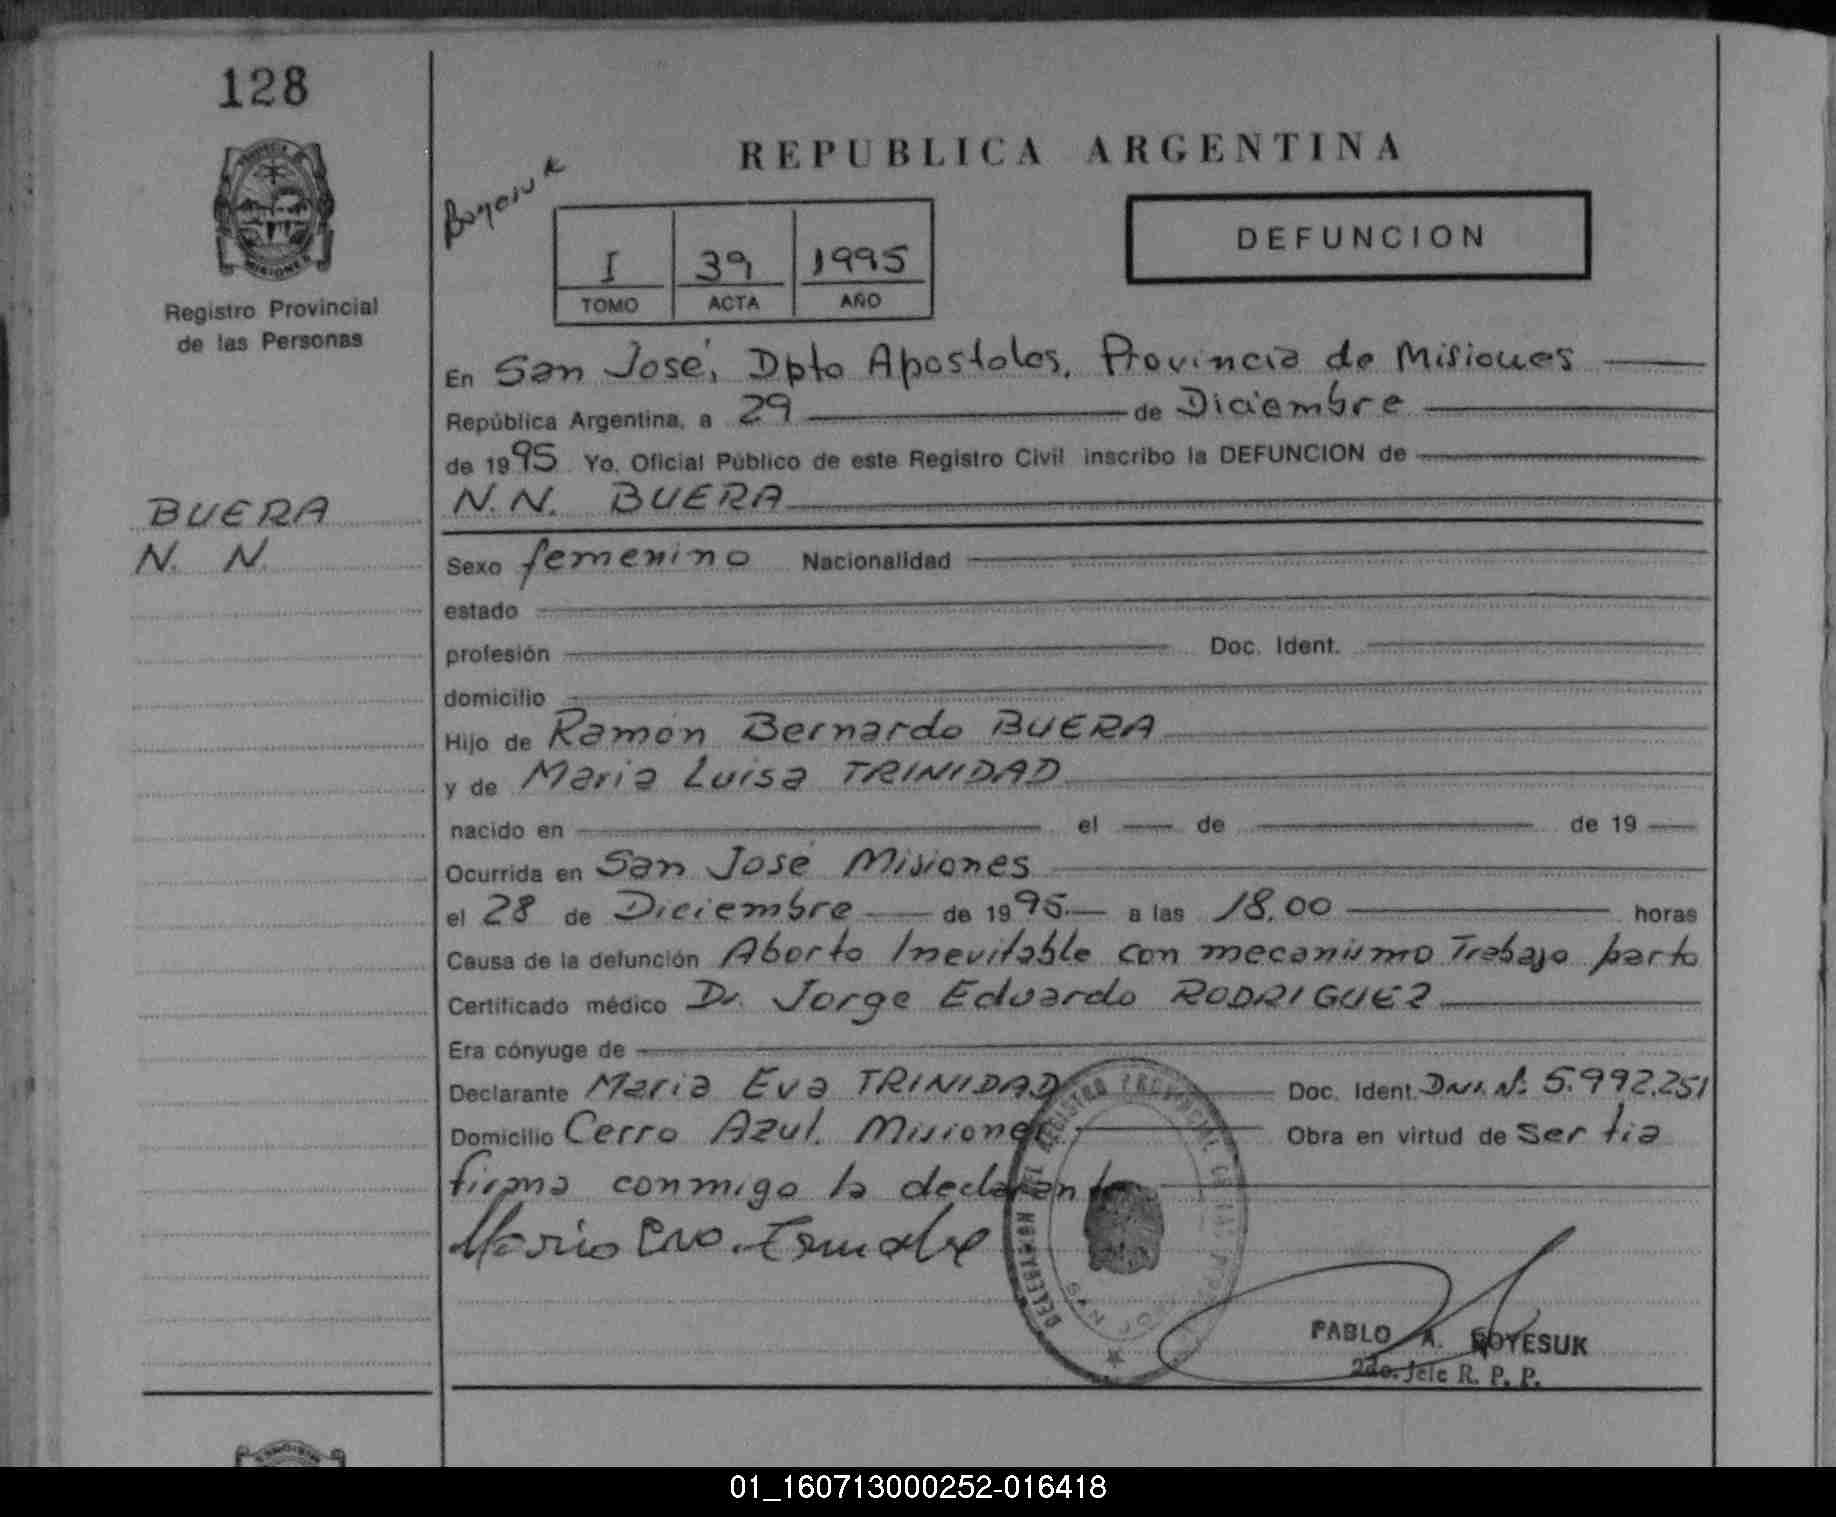 128
PROVINCIA DE
MISIONES
Registro Provincial
de las Personas
BUERA
N. N.
REPUBLICA ARGENTINA
Boyesuk
I 39 1995
TOMO ACTA AÑO
DEFUNCION
En San José, Dpto Apostoles, Provincia de Misiones
República Argentina, a 29 de Diciembre
de 1995 Yo, Oficial Público de este Registro Civil inscribo la DEFUNCION de
N.N. BUERA
Sexo femenino Nacionalidad
estado
profesión Doc. Ident.
domicilio
Hijo de Ramón Bernardo BUERA
y de Maria Luisa TRINIDAD
nacido en el de de 19
Ocurrida en San José Misiones
el 28 de Diciembre de 1995 a las 18,00 horas
Causa de la defunción Aborto Inevitable con mecanismo Trabajo parto
Certificado médico Dr. Jorge Eduardo RODRIGUEZ
Era cónyuge de
Declarante Maria Eva TRINIDAD Doc. Ident. DNI. Nº 5.992.251
Domicilio Cerro Azul. Misiones Obra en virtud de ser tia
firma conmigo la declarante
Maria Eva
DELEGACION DEL REGISTRO PROVINCIAL DE LAS
SAN JOSE
PABLO A. BOYESUK
2do. Jefe R. P. P.
01_160713000252-016418